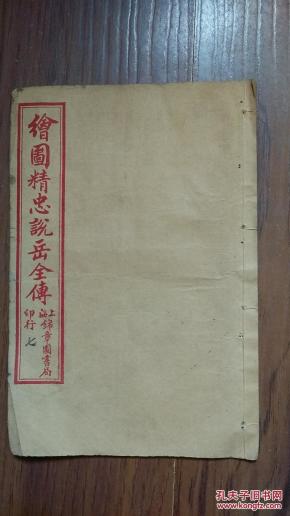 繪圖精忠說岳全傳
上海錦章圖書局
印行 七
孔夫子旧书网